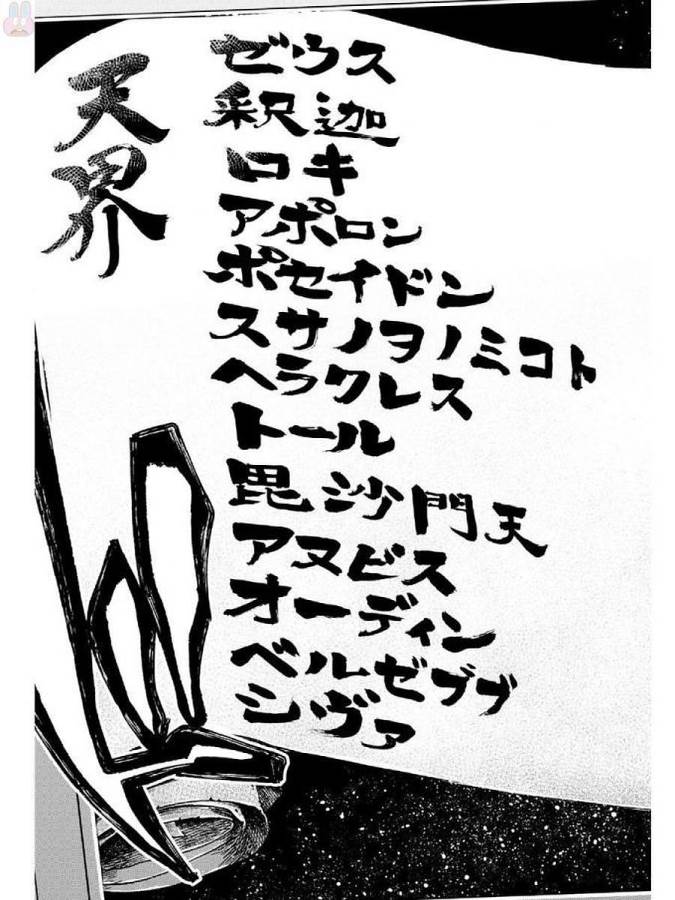 天界
ゼウス
釈迦
ロキ
アポロン
ポセイドン
スサノヲノミコト
ヘラクレス
トール
毘沙門天
アヌビス
オーディン
ベルゼブブ
シヴァ